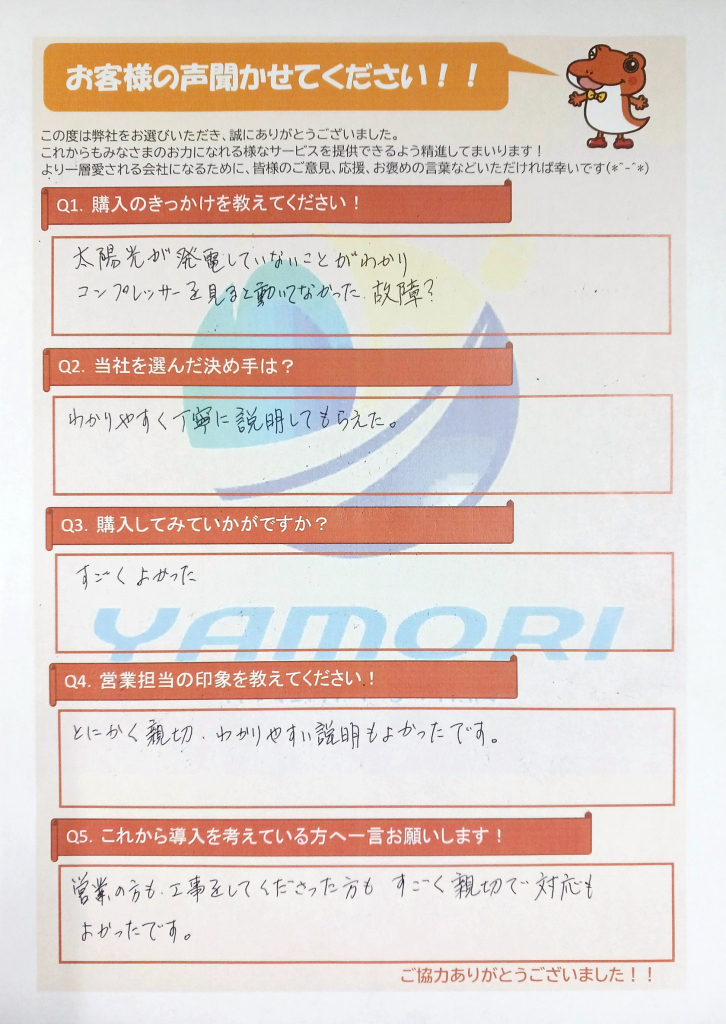 お客様の声聞かせてください！！
この度は弊社をお選びいただき、誠にありがとうございました。
これからもみなさまのお力になれる様なサービスを提供できるよう精進してまいります！
より一層愛される会社になるために、皆様のご意見、応援、お褒めの言葉などいただければ幸いです(*^-^*)
Q1. 購入のきっかけを教えてください！
太陽光が発電していないことがわかり
コンプレッサーを見ると動いてなかった 故障？
Q2. 当社を選んだ決め手は？
わかりやすく丁寧に説明してもらえた。
Q3. 購入してみていかがですか？
すごくよかった
YAMORI
Q4. 営業担当の印象を教えてください！
とにかく親切、わかりやすい説明もよかったです。
Q5. これから導入を考えている方へ一言お願いします！
営業の方も、工事をしてくださった方も すごく親切で対応も
よかったです。
ご協力ありがとうございました！！